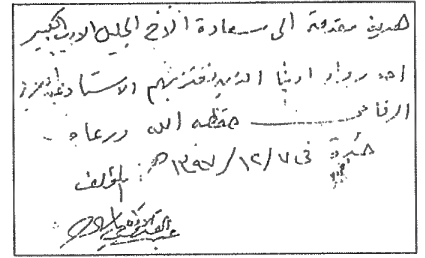 هدية مقدمة الى سعادة الأخ الجليل الاديب الكبير
احد رواد ادبنا الذين نفتخر بهم الاستاذ عبدالعزيز
الرفاعي حفظه الله ورعاه
جدة في ٧/١٢/١٣٩٧هـ المؤلف